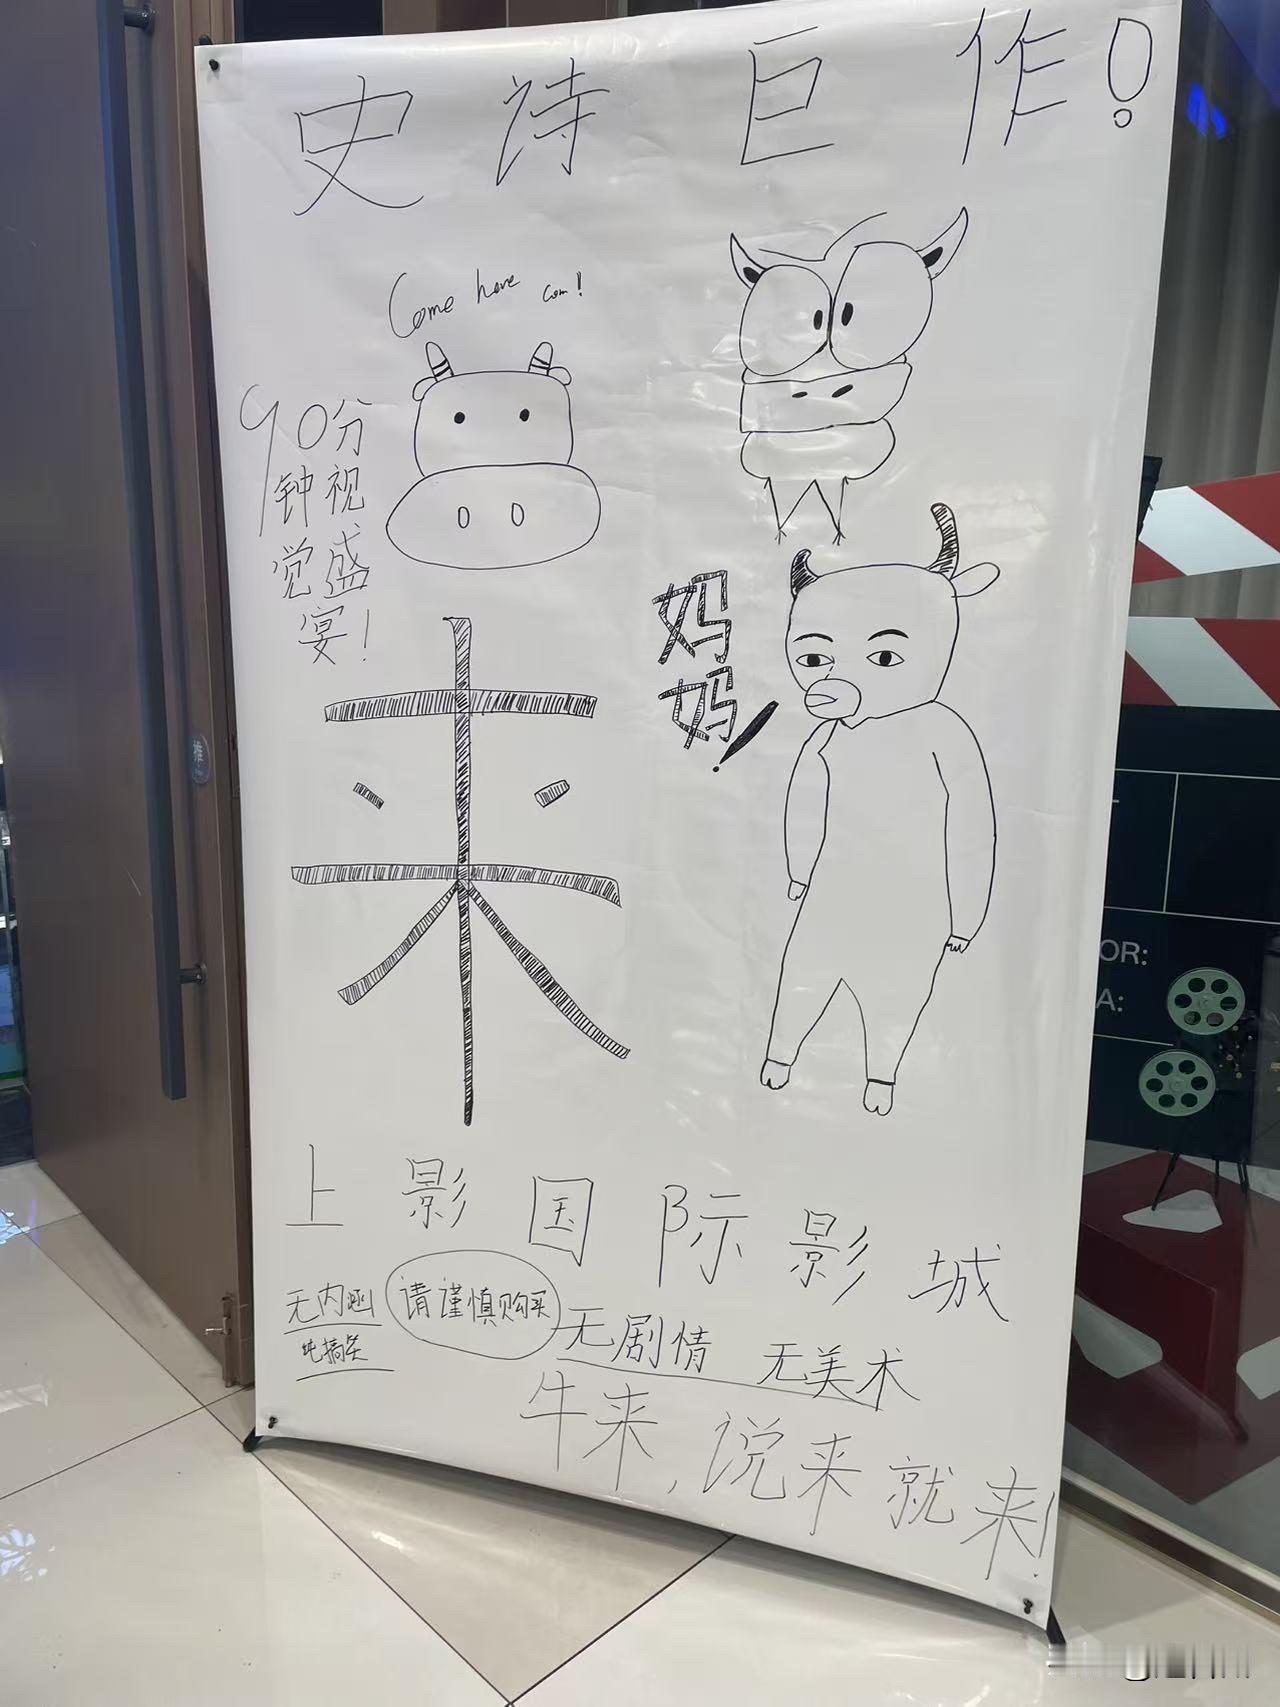 史诗巨作!
Come here com!
90分
钟视
觉盛
宴!
来
妈
妈!
上影国际影城
无内涵
纯搞笑
请谨慎购买
无剧情 无美术
牛来,说来就来!
推
OR:
A: